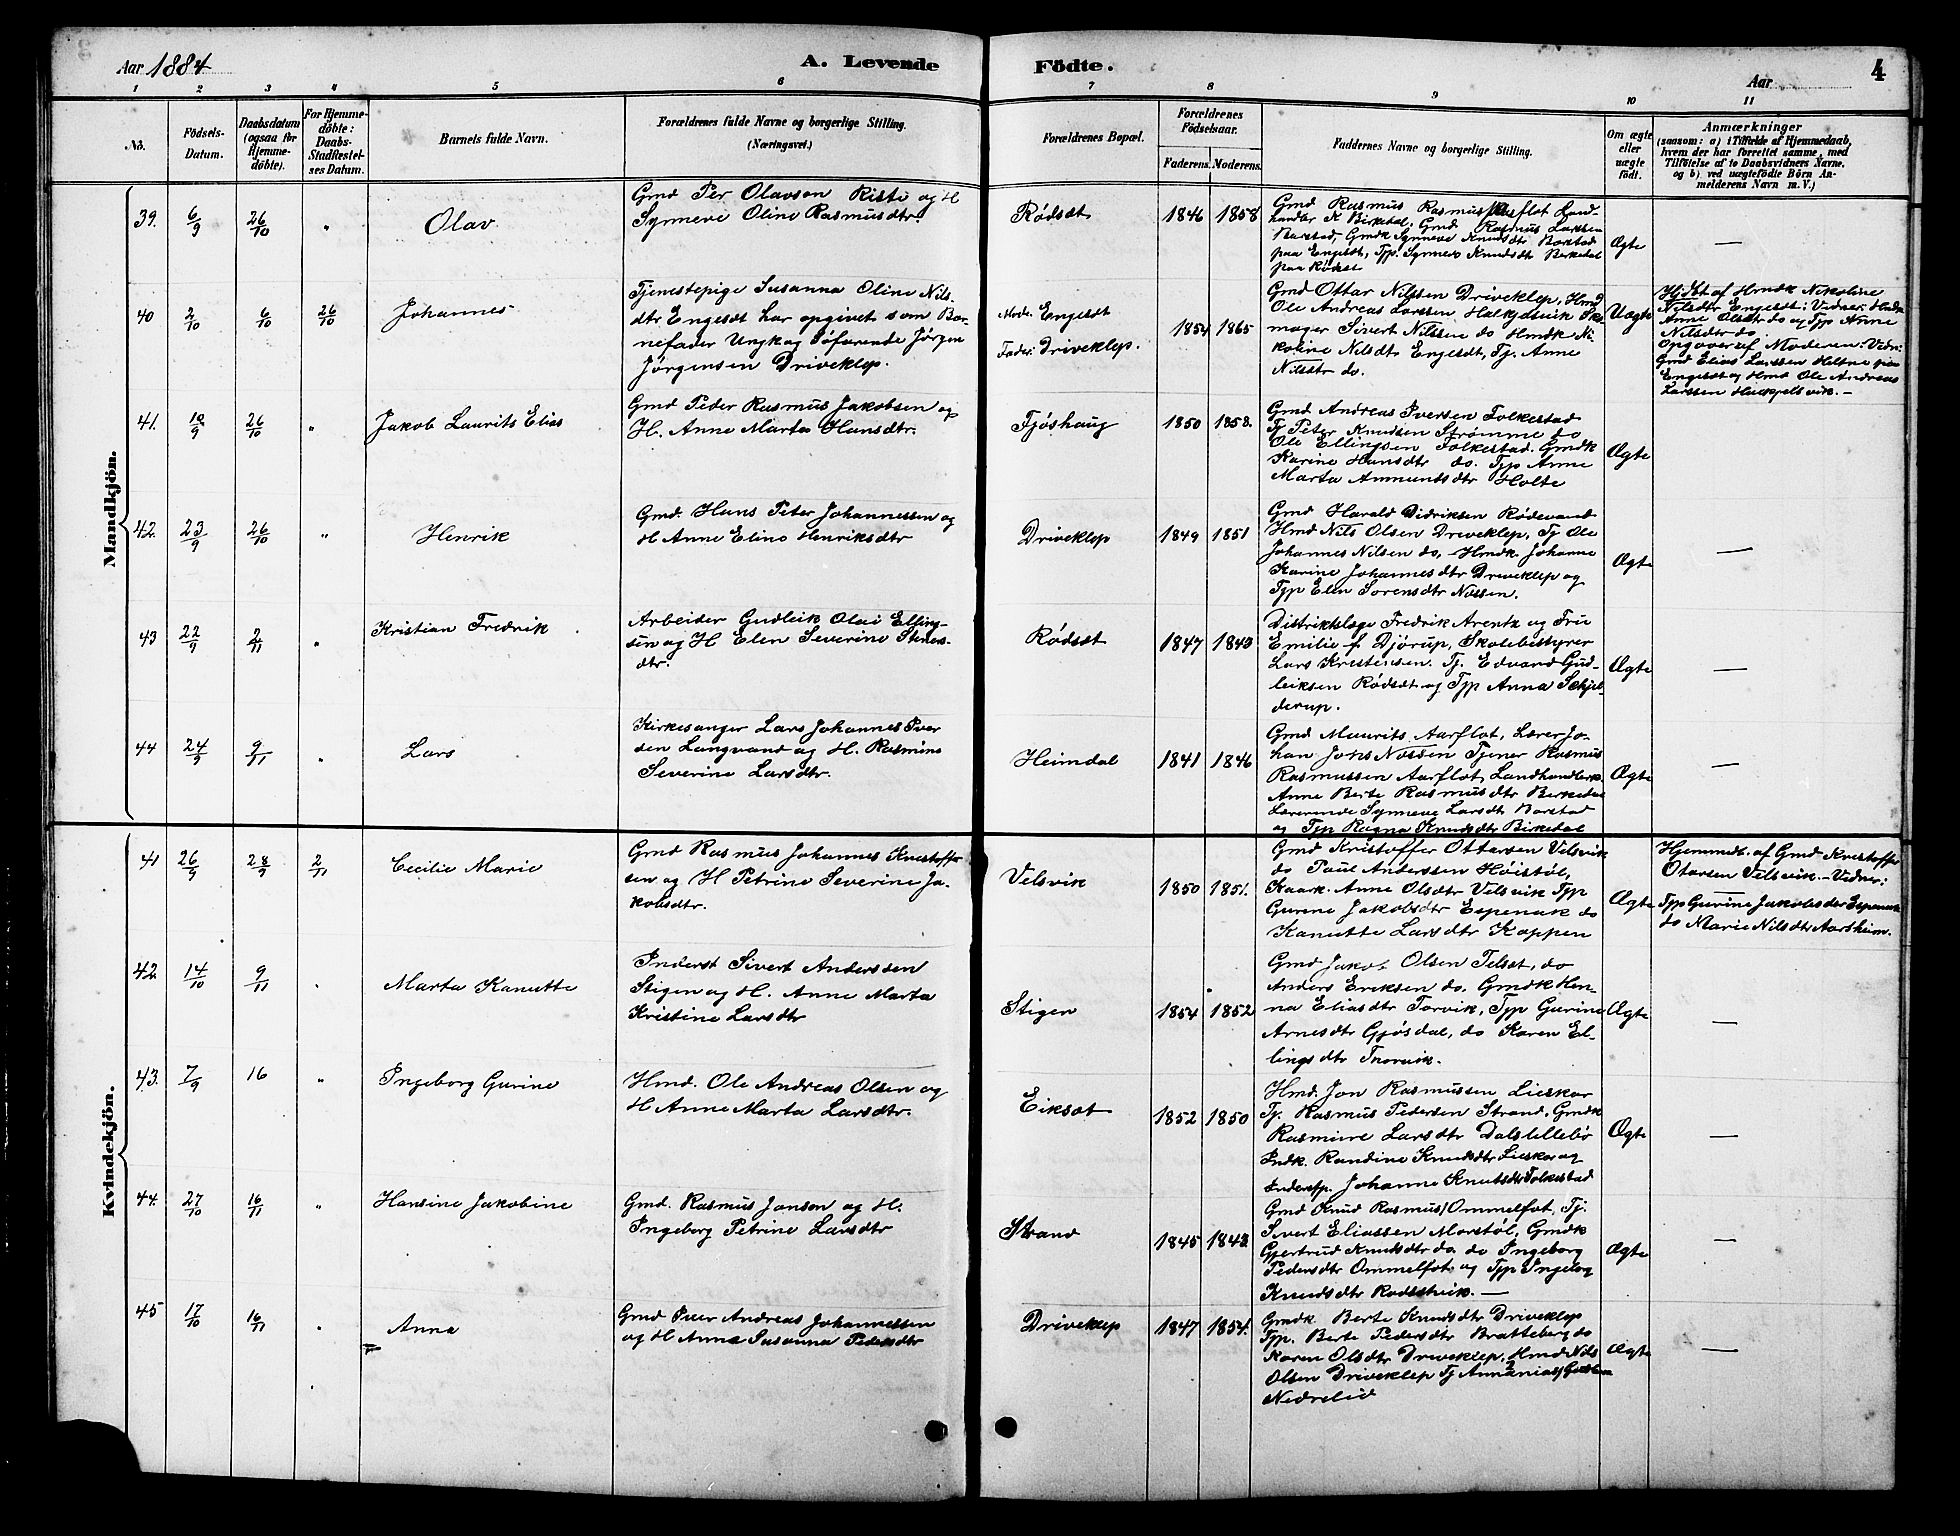 Aar 1884
A. Levende
Födte.
Aar
4
1 2 3 4 5 6 7 8 9 10 11
No.
Födsels-
Datum.
Daabsdatum
(ogsaa för
Hjemme-
döbte).
For Hjemme-
döbte:
Daabs-
Stadfæstel-
ses Datum.
Barnets fulde Navn.
Forældrenes fulde Navne og borgerlige Stilling.
(Næringsvei.)
Forældrenes Bopæl.
Forældrenes
Födselsaar.
Faderens. Moderens.
Faddernes Navne og borgerlige Stilling.
Om ægte
eller
uægte
födt.
Anmærkninger
(saasom: a) i Tilfælde af Hjemmedaab,
hvem der har forrettet samme, med
Tilföielse af to Daabsvidners Navne,
og b) ved uægtefödte Börn An-
melderens Navn m. V.)
Mandkjön.
39. 6/9 26/10 " Olav
Gmd Per Olavson Riste og H
Synneve Oline Rasmusdtr.
Rødsæt 1846 1858
Gmd Rasmus Rasmus Aarflot Land-
handler K Birkedal, Gmd Rasmus Larssen
Barstad, Gmdk Synneve Knudsdtr Barstad
paa Engesæt, Typ. Synneve Knudsdtr Birkedal
paa Rødsæt
Ægte —
40 2/10 6/10 26/10 Johannes
Tjenestepige Susanna Oline Nils-
dtr Engesdt har opgivet som Bar-
nefader Ungkag Søfarende Jörgen
Jörgensen Driveklep.
Mod. Engesdt
Fader: Driveklep.
1854 1865
Gmd Ottar Nilssen Driveklep, Hmd
Ole Andreas Larssen Halkjdsvik Sko-
mager Sivert Nilssen do Hmdk Ni-
koline Nilsdtr Engelsdt, Tj. Anne
Nilsdtr do.
Uægte
Hj.dbt af Hmdk Nikoline
Nilsdtr Engesdt: Vidner: Hmdk
Anne Olsdtr do og Typ Anne
Nilsdtr do
Opgaver af Moderen: Vidn:
Gmd Elias Larssen Heltne paa
Engesæt og Hmd Ole Andreas
Larssen Hukjelsvik. —
41. 12/9 26/10 " Jakob Laurits Elias
Gmd Peder Rasmus Jakobsen og
H. Anne Marta Hansdtr.
Fjøshaug 1850 1858.
Gmd Andreas Iversen Folkestad
Tj Peter Knudsen Strømme do
Ole Ellingsen Folkestad. Gmdk
Karine Hansdtr do. Typ Anne
Marta Ammundsdtr Holte
Ægte
42. 23/9 26/10 " Henrik
Gmd. Hans Peter Johannessen og
H Anne Elino Henriksdtr
Driveklep 1849 1851
Gmd Harald Didriksen Rødevand
Hmd Nils Olsen Driveklep, Tj Ole
Johannes Nilsen do, Hmdk. Johanne
Karine Johannesdtr Driveklep og
Typ Elen Sorensdtr Nossen.
Ægte —
43 22/9 2/11 " Kristian Fredrik
Arbeider Gudleik Olai Elling-
sen og H Elen Severine Stenes-
dtr.
Rødsæt 1847 1843
Distriktslæge Fredrik Arentz og Fru
Emilie f. Djörup, Skolebestyrer
Lars Kristensen. Tj. Edvard Gud-
leiksen Rødsdt og Typ Anna Schjel-
derup.
Ægte —
44 24/9 9/11 " Lars
Kirkesanger Lars Johannes Iver
sen Langvand og H. Rasmine
Severine Larsdtr.
Heimdal 1841 1846
Gmd Maurits Aarflot, Lærer Jo-
han Johs Nossen Tjener Rasmus
Rasmussen Aarflot, Landhandlerk.
Anne Berte Rasmusdtr Birkedal
Lærerinde Synneve Larsdt Barstad
og Typ Ragna Knudsdtr Birkedal
Ægte —
Kvindekjön.
41 26/9 28/9 2/11 Cecilie Marie
Gmd Rasmus Johannes Kristoffer
sen og H Petrine Severine Ja-
kobsdtr.
Velsvik 1850 1851.
Gmd Kristoffer Ottarsen Velsvik
do Paul Anderssen Høistøl,
Kaark. Anne Olsdtr Velsvik Typ
Gurine Jakobsdtr Espenak do
Kanutte Larsdtr Koppen
Ægte
Hjemmdt. af Gmd Kristoffe
Otarsen Velsvik. — Vidner:
Typ Gurine Jakobsdtr Espenak
do Marie Nilsdtr Aarsheim.
42 14/10 9/11 " Marta Kanutte
Inderst Sivert Anderssen
Stigen og H. Anne Marta
Kristine Larsdtr
Stigen 1854 1852
Gmd Jakob Olsen Telset, do
Anders Eriksen do. Gmdk Han-
na Eliasdtr Torvik, Typ Gurine
Arnesdtr Gjøsdal, do Karen El-
lingsdtr Thorvik.
Ægte —
43. 7/9 16 " Ingeborg Gurine
Hmd. Ole Andreas Olsen og
H Anne Marta Larsdtr.
Eiksæt 1852 1850
Hmd. Jon Rasmussen Lieskar
Tj. Rasmus Pedersen Strand, Gmdk
Rasmine Larsdtr Dalslillebø
Indk. Randine Knudsdtr Lieskar og
Inderstp. Johanne Knutsdtr Folkestad
Ægte —
44. 27/10 16/11 " Hansine Jakobine
Gmd. Rasmus Jonson og H.
Ingeborg Petrine Larsdtr
Strand 1845 1843
Gmd Knud Rasmus Ommelfot, Tj.
Sivert Eliassen Morstøl, Gmdk
Gjertrud Knudsdtr do. do Ingeborg
Pedersdtr Ommelfot og Typ Ingebog
Knudsdtr Rødsethvik. —
Ægte —
45 17/10 16/11 " Anna
Gmd Iver Andreas Johannessen
og H Anna Susanna Pedersdtr
Driveklep 1847 1854.
Gmdk. Berte Knudsdtr Driveklep
Typ. Berte Pedersdtr Bratteberg do
Karen Olsdtr Driveklep, Hmd Nils
Olsen Driveklep Tj Annanias
Nedrelid
Ægte —